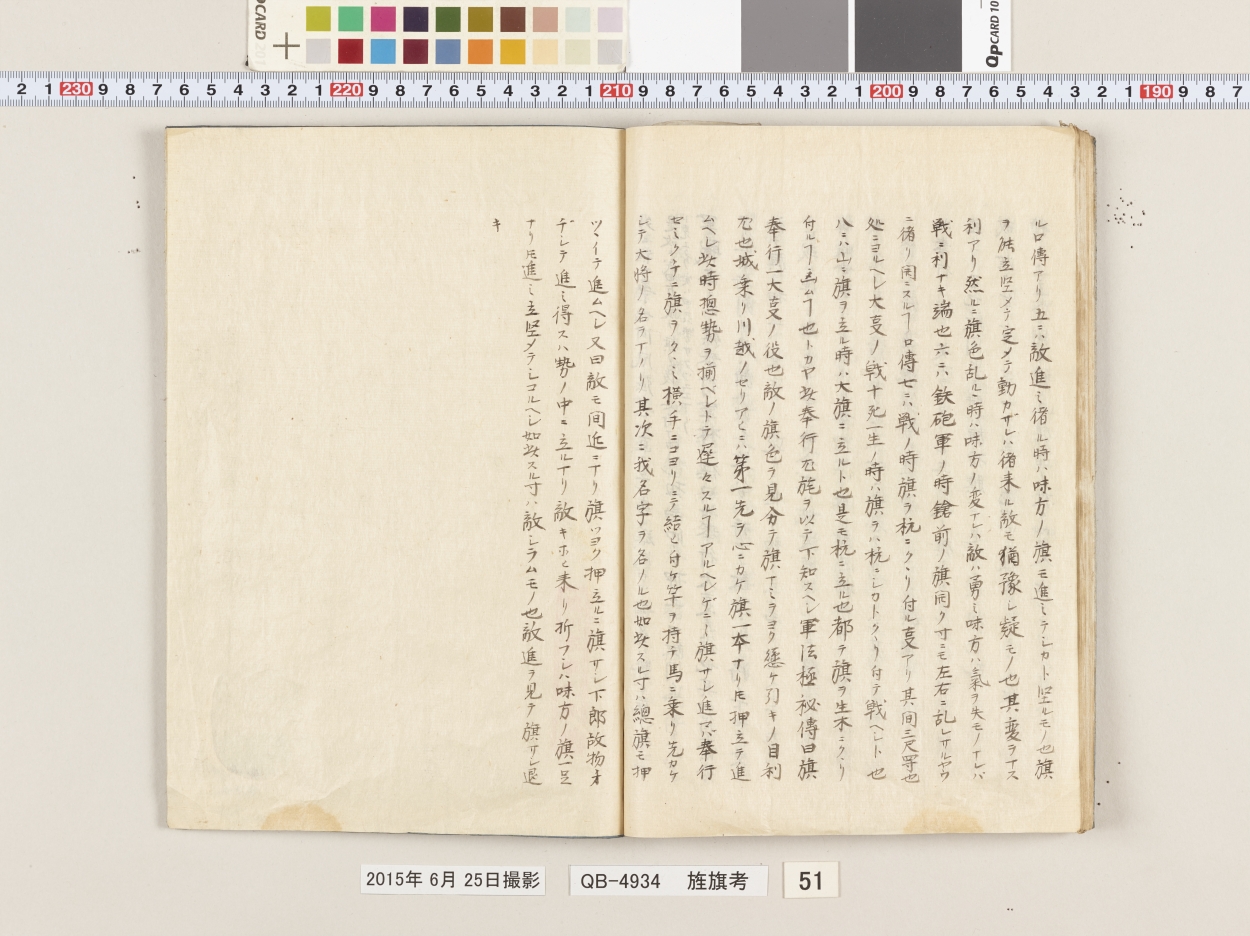 OPCARD
QPCARD 10
2 1 230 9 8 7 6 5 4 3 2 1 220 9 8 7 6 5 4 3 2 1 210 9 8 7 6 5 4 3 2 1 200 9 8 7 6 5 4 3 2 1 190 9 8 7
ル口傳アリ五ニハ敵進ミ徃ル時ハ味方ノ旗モ進ミテシカト堅ルモノ也旗
ヲ能立堅メテ定メテ動カザレハ徃来ル敵モ猶豫シ疑モノ也其変ヲナス
利アリ然ルニ旗色乱ルヽ時ハ味方ノ変ナレハ敵ハ勇ミ味方ハ氣ヲ失モノナレバ
戦ニ利ナキ端也六ニハ鉄砲軍ノ時鎗前ノ旗同ク寸ニモ左右ニ乱レサルヤウ
ニ徃リ同ニスルヿ口傳七ニハ戦ノ時旗ヲ杭ニクヽリ付ル叓アリ其間三尺
処ニヨルヘシ大叓ノ戦十死一生ノ時ハ旗ヲハ杭ニシカトクヽリ付テ戦ヘシト也
八ニハ山ニ旗ヲ立ル時ハ大旗ニ立ルト也是モ杭ニ立ル也都テ旗ヲ生木ニクヽリ
付ルヿ也トカヤ此奉行旄ヲ以テ下知スヘシ軍法極秘傳曰旗
奉行一大叓ノ役也敵ノ旗色ヲ見分テ旗ナミヲヨク懸ケ引キノ目利
尤也城乗リ川越ノセリアヒニハ第一先ヲ心ニカケ旗一本ナリ𪜈押立テ進
ムヘシ此時惣勢ヲ揃ベシトテ遅々スルヿアルヘシ旗サシ進マハ奉行
旗ヲタヽミ横手ニコヨリニテ結ヒ付ケ竿ヲ持テ馬ニ乗リ先カケ
シテ大将ノ名ヲナノリ其次ニ我名字ヲ名ノル也如此スル寸ハ總旗モ押
ツヽイテ進ムヘシ又曰敵モ間近ニナリ旗ツヨク押立ルニ旗サシ下郎故物オ
チシテ進ミ得スハ勢ノ中ニ立ルナリ敵キホヒ来リ折フシハ味方ノ旗一足
ナリ𪜈進ミ立堅メテシコルヘシ如此スル寸ハ敵シラムモノ也敵進ヲ見テ旗サシ退
キ
2015年 6月 25日撮影
QB-4934 旌旗考
51